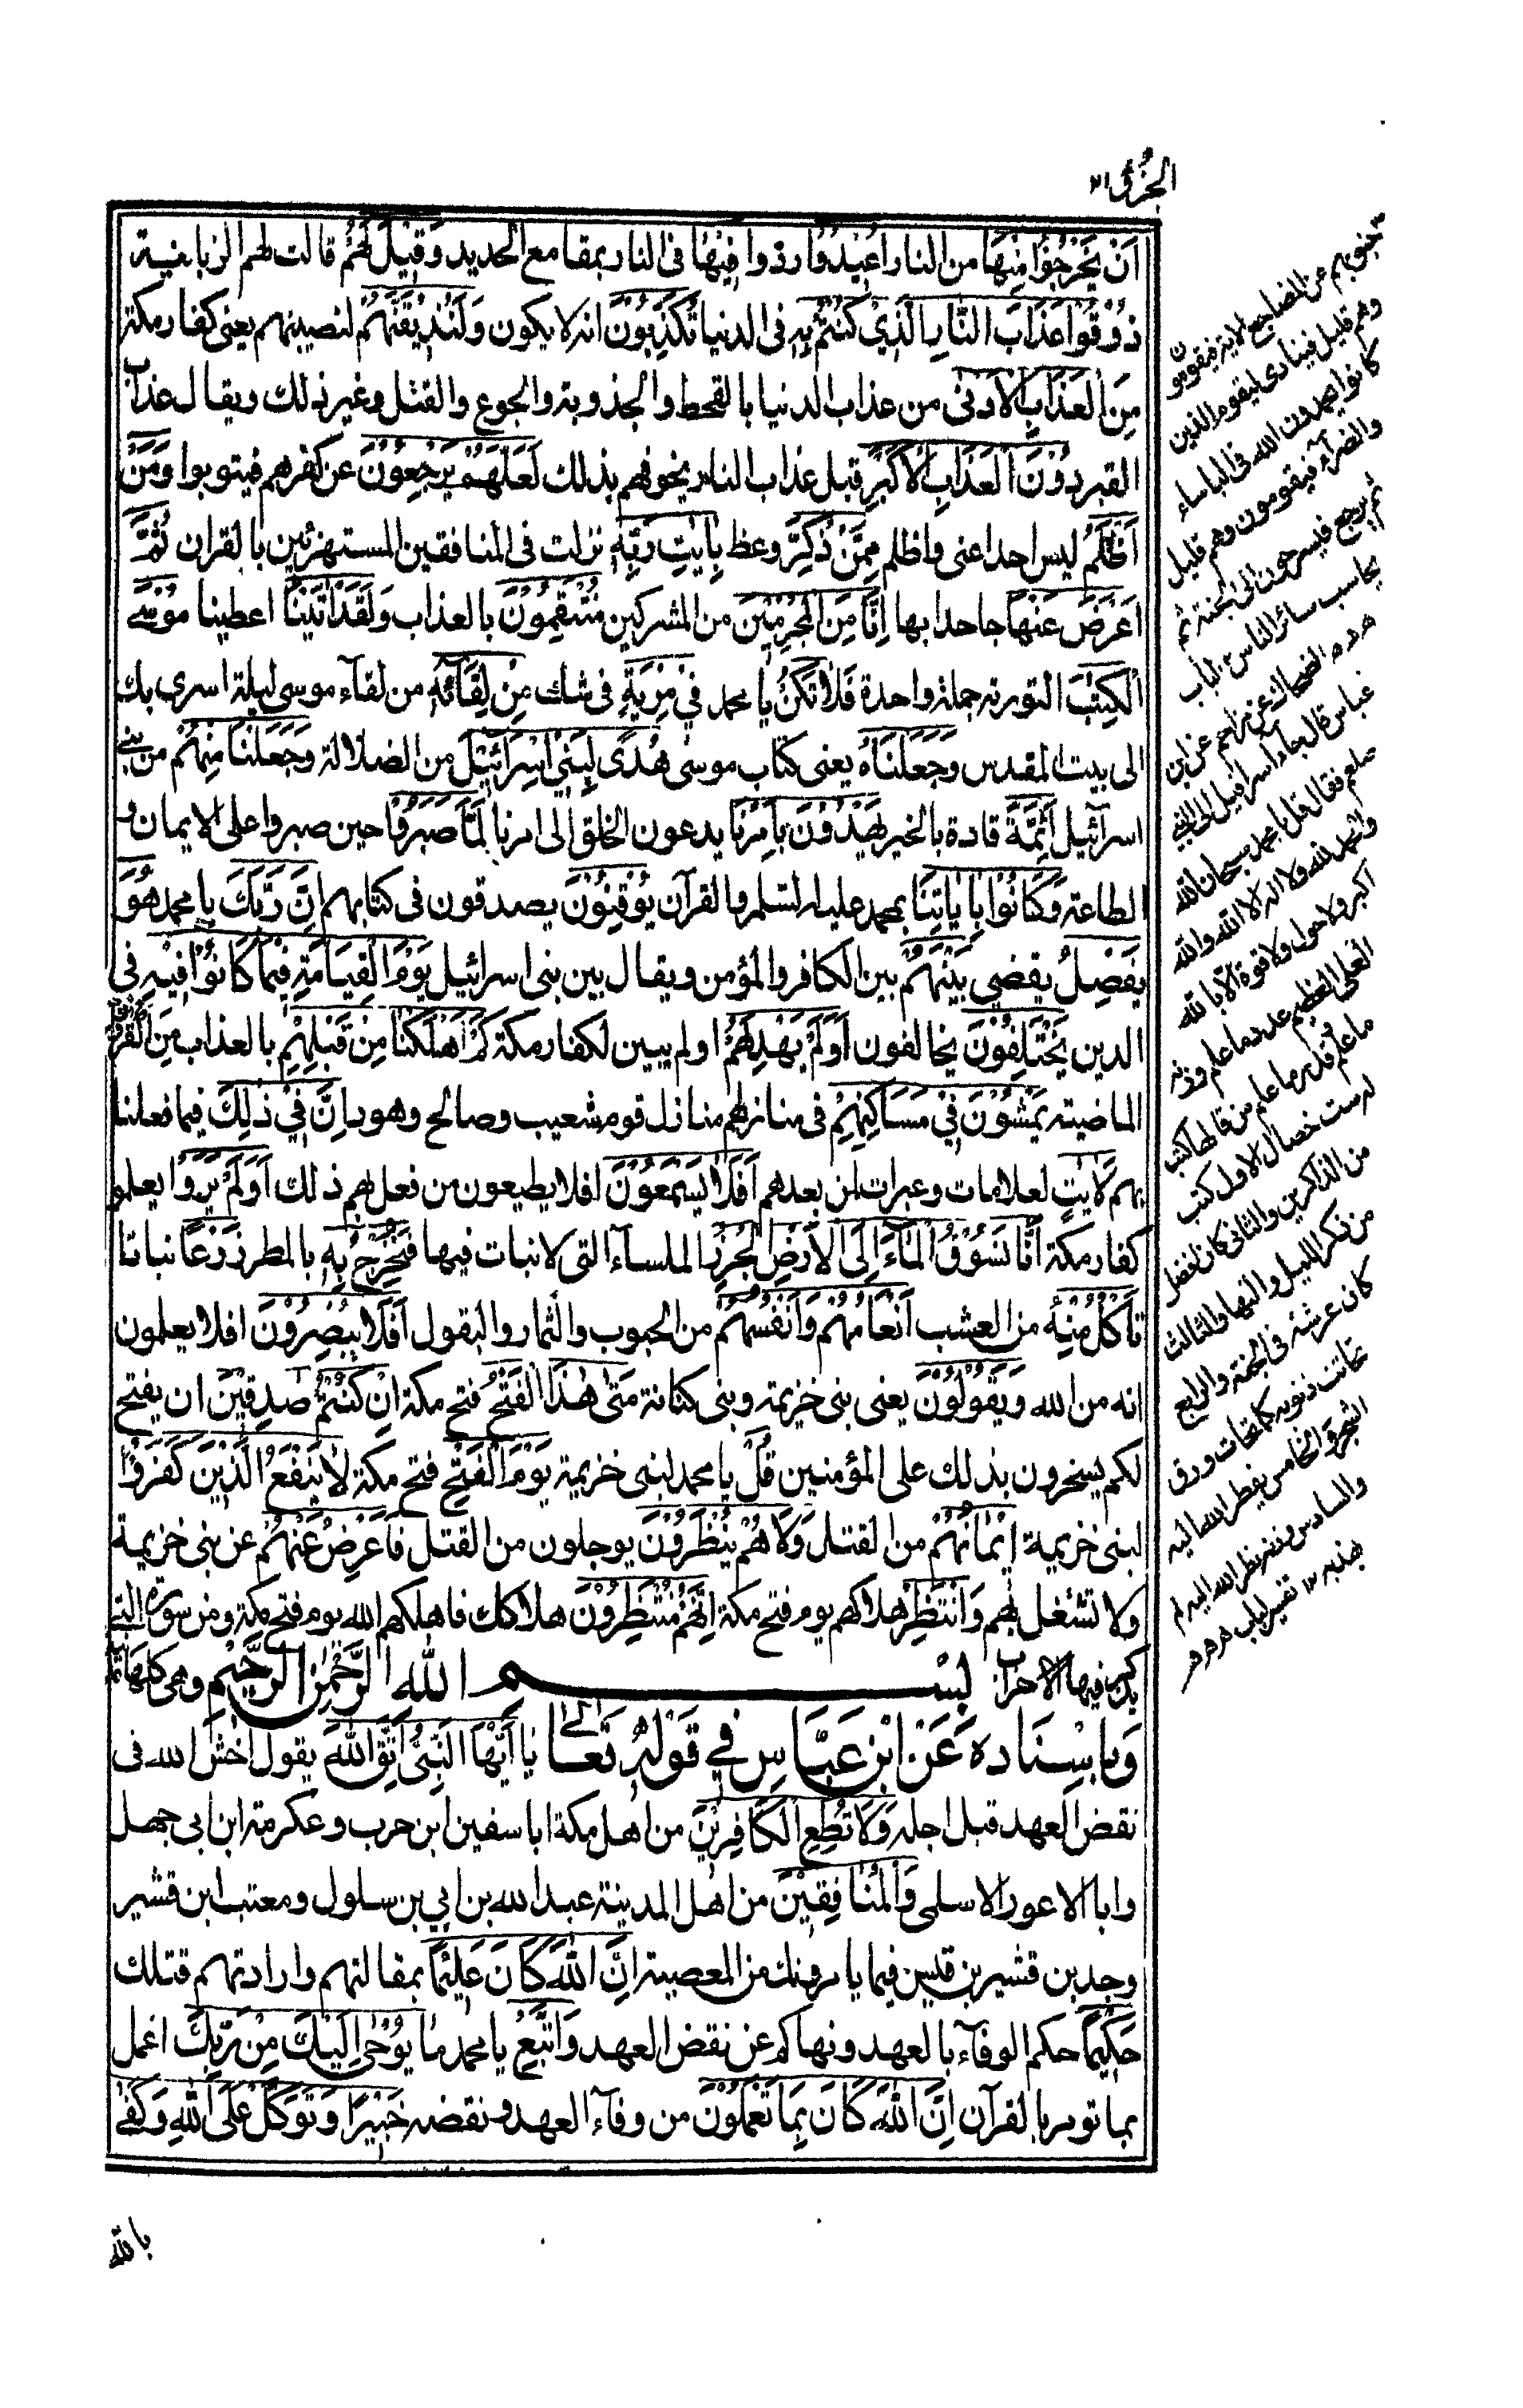 الجزء ٢١
اَنْ يَخْرُجُوْا مِنْهَا من النار اُعِيْدُوْا ردوا فِيْهَا فى النار بمقامع الحديد وَقِيْلَ لَهُمْ قالت لهم الزبانية
ذُوْقُوْا عَذَابَ النَّارِ الَّذِيْ كُنْتُمْ بِهٖ فى الدنيا تُكَذِّبُوْنَ انه لا يكون وَلَنُذِيْقَنَّهُمْ لنصيبنهم يعنى كفار مكة
مِنَ الْعَذَابِ الْاَدْنٰى من عذاب الدنيا بالقحط والجذوبة والجوع والقتل وغير ذلك ويقال عذاب
القبر دُوْنَ الْعَذَابِ الْاَكْبَرِ قبل عذاب النار يخوفهم بذلك لَعَلَّهُمْ يَرْجِعُوْنَ عن كفرهم فيتوبوا وَمَنْ
اَظْلَمُ ليس احد اعتى واظلم مِمَّنْ ذُكِّرَ وعظ بِاٰيٰتِ رَبِّهٖ نزلت فى المنافقين المستهزئين بالقران ثُمَّ
اَعْرَضَ عَنْهَا جاحدا بها اِنَّا مِنَ الْمُجْرِمِيْنَ من المشركين مُنْتَقِمُوْنَ بالعذاب وَلَقَدْ اٰتَيْنَا اعطينا مُوْسَى
الْكِتٰبَ التورية جملة واحدة فَلَا تَكُنْ يا محمد فِيْ مِرْيَةٍ فى شك مِنْ لِقَآئِهٖ من لقآء موسى ليلة اسرى بك
الى بيت المقدس وَجَعَلْنَاهُ يعنى كتاب موسى هُدًى لِبَنِيْ اِسْرَآئِيْلَ من الضلالة وَجَعَلْنَا مِنْهُمْ من بنى
اسرآئيل اَئِمَّةً قادة بالخير يَهْدُوْنَ بِاَمْرِنَا يدعون الخلق الى امرنا لَمَّا صَبَرُوْا حين صبروا على الايمان و
الطاعة وَكَانُوْا بِاٰيَاتِنَا بمحمد عليه السلم والقرآن يُوْقِنُوْنَ يصدقون فى كتابهم اِنَّ رَبَّكَ يا محمد هُوَ
يَفْصِلُ يقضي بَيْنَهُمْ بين الكافر والمؤمن ويقال بين بنى اسرائيل يَوْمَ الْقِيَامَةِ فِيْمَا كَانُوْا فِيْهِ فى
الدين يَخْتَلِفُوْنَ يخالفون اَوَلَمْ يَهْدِ لَهُمْ اولم يبين لكفار مكة كَمْ اَهْلَكْنَا مِنْ قَبْلِهِمْ بالعذاب مِنَ الْقُرُوْنِ
الماضية يَمْشُوْنَ فِيْ مَسَاكِنِهِمْ فى منازلهم منازل قوم شعيب وصالح وهود اِنَّ فِيْ ذٰلِكَ فيما فعلنا
بهم لَاٰيٰتٍ لعلامات وعبرات لمن بعدهم اَفَلَا يَسْمَعُوْنَ افلا يطيعون من فعل بهم ذلك اَوَلَمْ يَرَوْا يعلموا
كفار مكة اَنَّا نَسُوْقُ الْمَآءَ اِلَى الْاَرْضِ الْجُرُزِ الملسآء التى لا نبات فيها فَنُخْرِجُ بِهٖ بالمطر زَرْعًا نباتا
تَاْكُلُ مِنْهُ من العشب اَنْعَامُهُمْ وَاَنْفُسُهُمْ من الحبوب والثمار والبقول اَفَلَا يُبْصِرُوْنَ افلا يعلمون
انه من الله وَيَقُوْلُوْنَ يعنى بنى خزيمة وبنى كنانة مَتٰى هٰذَا الْفَتْحُ فتح مكة اِنْ كُنْتُمْ صٰدِقِيْنَ ان يفتح
لكم يسخرون بذلك على المؤمنين قُلْ يا محمد لبنى خزيمة يَوْمَ الْفَتْحِ فتح مكة لَا يَنْفَعُ الَّذِيْنَ كَفَرُوْا
لبنى خزيمة اِيْمَانُهُمْ من القتل وَلَا هُمْ يُنْظَرُوْنَ يوجلون من القتل فَاَعْرِضْ عَنْهُمْ عن بنى خزيمة
ولا تشغل بهم وَانْتَظِرْ هلاكهم يوم فتح مكة اِنَّهُمْ مُنْتَظِرُوْنَ هلاكك فاهلكهم الله يوم فتح مكة ومن سورة التى
يذكر فيها الاحزاب بِسْمِ اللهِ الرَّحْمٰنِ الرَّحِيْمِ وهى كلها
وَبِاِسْنَادِهٖ عَنْ ابْنِ عَبَّاسٍ فِيْ قَوْلِهٖ تَعَالٰى يٰٓا اَيُّهَا النَّبِيُّ اتَّقِ اللهَ يقول اخش الله فى
نقض العهد قبل اجله وَلَا تُطِعِ الْكَافِرِيْنَ من اهل مكة ابا سفين ابن حرب وعكرمة ابن ابى جهل
وابا الاعور الاسلمى وَالْمُنَافِقِيْنَ من اهل المدينة عبد الله بن ابي بن سلول ومعتب ابن قشير
وجد بن قشير بن قيس فيما يامرونك من المعصية اِنَّ اللهَ كَانَ عَلِيْمًا بمقالتهم وارادتهم قتلك
حَكِيْمًا حكم الوفآء بالعهد ونهاكم عن نقض العهد وَاتَّبِعْ يا محمد مَا يُوْحٰى اِلَيْكَ مِنْ رَبِّكَ اعمل
بما تومر بالقرآن اِنَّ اللهَ كَانَ بِمَا تَعْمَلُوْنَ من وفآء العهد ونقضه خَبِيْرًا وَتَوَكَّلْ عَلَى اللهِ وَكَفٰى
بالله
جنوبهم عن المضاجع الاية فيقومون
وهم قليل فينادى ليقوم الذين
كانوا يحمدون الله فى الباساء
والضرآء فيقومون وهم قليل
ثم يرجع فيسرحون الى الجنة ثم
يحاسب سائر الناس
الضحاك عن مزاحم عن ابن
عباس قال جاء اسرافيل الى النبى
صلعم فقال قل يا محمد سبحان الله
والحمد لله ولا اله الا الله والله
اكبر ولا حول ولا قوة الا بالله
العلى العظيم عدد ما علم وزنة
ما علم من قالها كتب
له ست خصال الاول كتب
من الذاكرين والثانى كان افضل
من ذكر الليل والنهار والثالث
كان غرسه فى الجنة والرابع
تحاتت ذنوبه كما تحات ورق
الشجر والخامس ينظر الله اليه
والسادس من نظر الله اليه لم
يعذبه ١٢ تفسير لباب